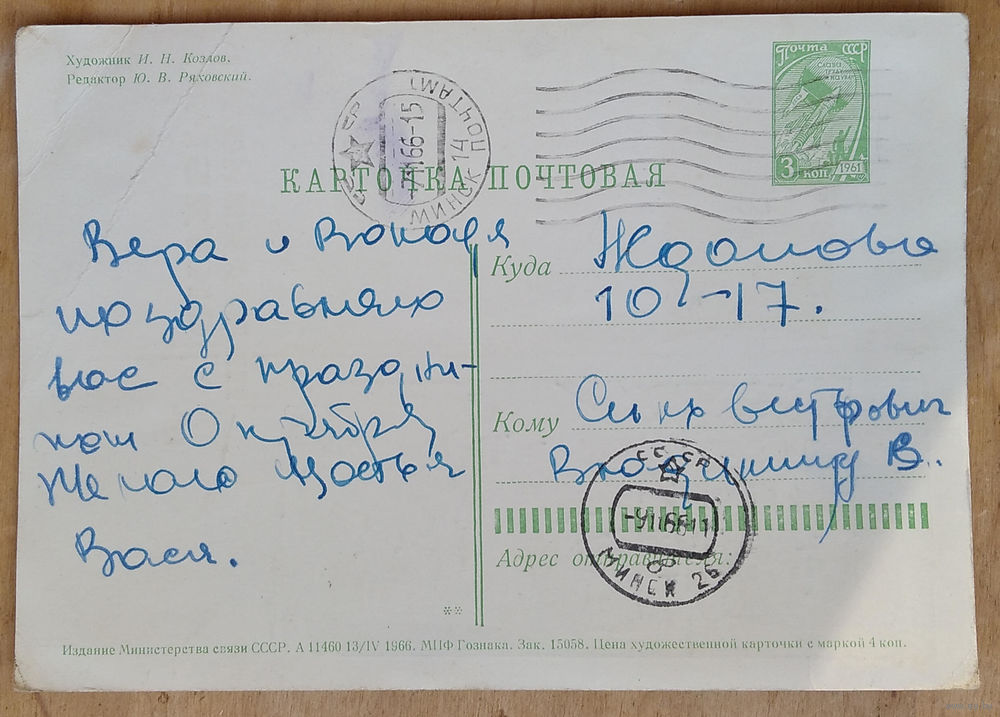 Художник И. Н. Козлов.
Редактор Ю. В. Ряховский.
СССР
МИНСК 14 ПОЧТАМТ
66-15
Почта СССР
СЛАВА
ТРУДУ
НАУКЕ
3 коп
1961
КАРТОЧКА ПОЧТОВАЯ
Вера и Володя
поздравляю
вас с праздни-
ком Октября
Желаю Щастья
Вася.
Куда Жданова
10 -17.
Кому
В.
СССР
-9 11 66 11
МИНСК 26
Адрес отправителя:
Издание Министерства связи СССР. А 11460 13/IV 1966. МПФ Гознака. Зак. 15058. Цена художественной карточки с маркой 4 коп.